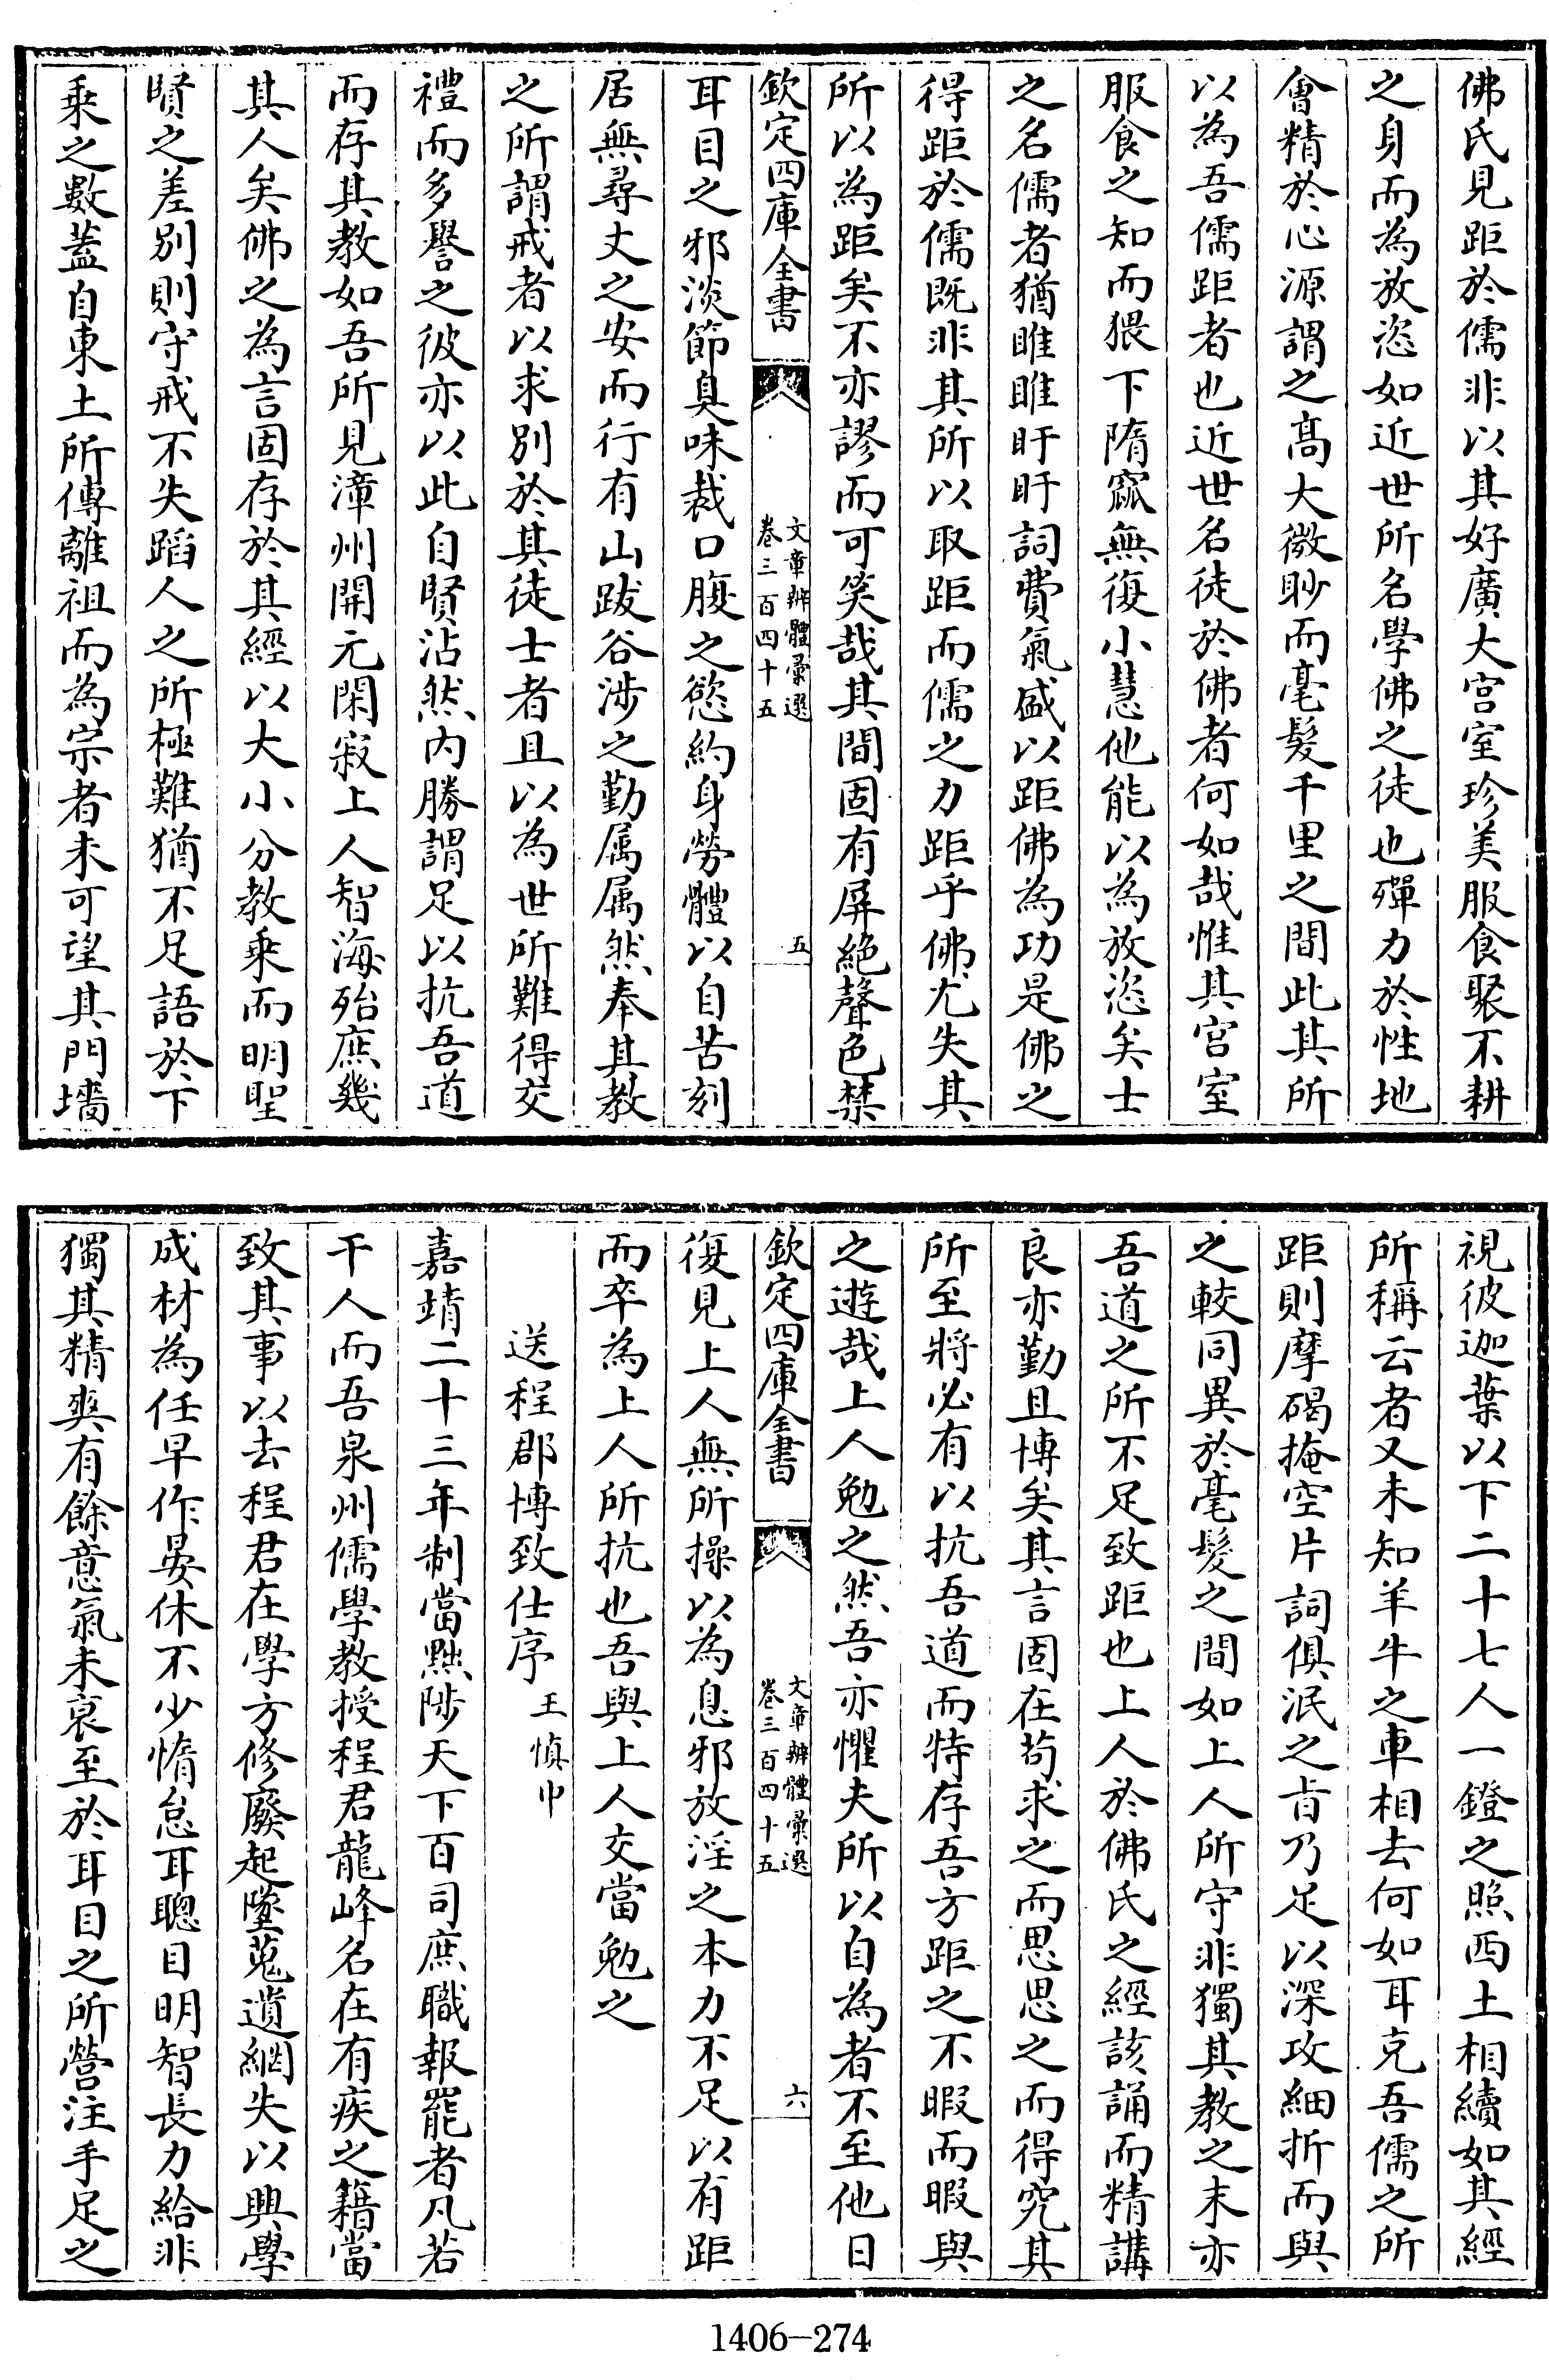 佛氏見距於儒非以其好廣大宫室珍美服食聚不耕
之身而為放恣如近世所名學佛之徒也殫力於性地
會精於心源謂之髙大微眇而毫髮千里之間此其所
以為吾儒距者也近世名徒於佛者何如哉惟其宫室
服食之知而猥下隋窳無復小慧他能以為放恣矣士
之名儒者猶睢睢盱盱詞費氣盛以距佛為功是佛之
得距於儒既非其所以取距而儒之力距乎佛尤失其
所以為距矣不亦謬而可笑哉其間固有屏絶聲色禁
欽定四庫全書
文章辨體彚選
卷三百四十五
五
耳目之邪淡節臭味裁口腹之慾約身勞體以自苦刻
居無尋丈之安而行有山跋谷涉之勤属属然奉其教
之所謂戒者以求別於其徒士者且以為世所難得交
禮而多譽之彼亦以此自賢沾然内勝謂足以抗吾道
而存其教如吾所見漳州開元閑寂上人智海殆庶幾
其人矣佛之為言固存於其經以大小分教乘而明聖
賢之差別則守戒不失蹈人之所極難猶不足語於下
乘之數蓋自東土所傳離祖而為宗者未可望其門墻
視彼迦葉以下二十七人一鐙之照西土相續如其經
所稱云者又未知羊牛之車相去何如耳克吾儒之所
距則摩碣掩空片詞俱泯之旨乃足以深攻細折而與
之較同異於毫髮之間如上人所守非獨其教之末亦
吾道之所不足致距也上人於佛氏之經該誦而精講
良亦勤且博矣其言固在苟求之而思思之而得究其
所至將必有以抗吾道而特存吾方距之不暇而暇與
之遊哉上人勉之然吾亦懼夫所以自為者不至他日
欽定四庫全書
文章辨體彚選
卷三百四十五
六
復見上人無所操以為息邪放淫之本力不足以有距
而卒為上人所抗也吾與上人交當勉之
送程郡博致仕序 王慎中
嘉靖二十三年制當黜陟天下百司庶職報罷者凡若
干人而吾泉州儒學教授程君龍峰名在有疾之籍當
致其事以去程君在學方修廢起墜蒐遺網失以興學
成材為任早作晏休不少惰怠耳聰目明智長力給非
獨其精爽有餘意氣未衰至於耳目之所營注手足之
1406-274